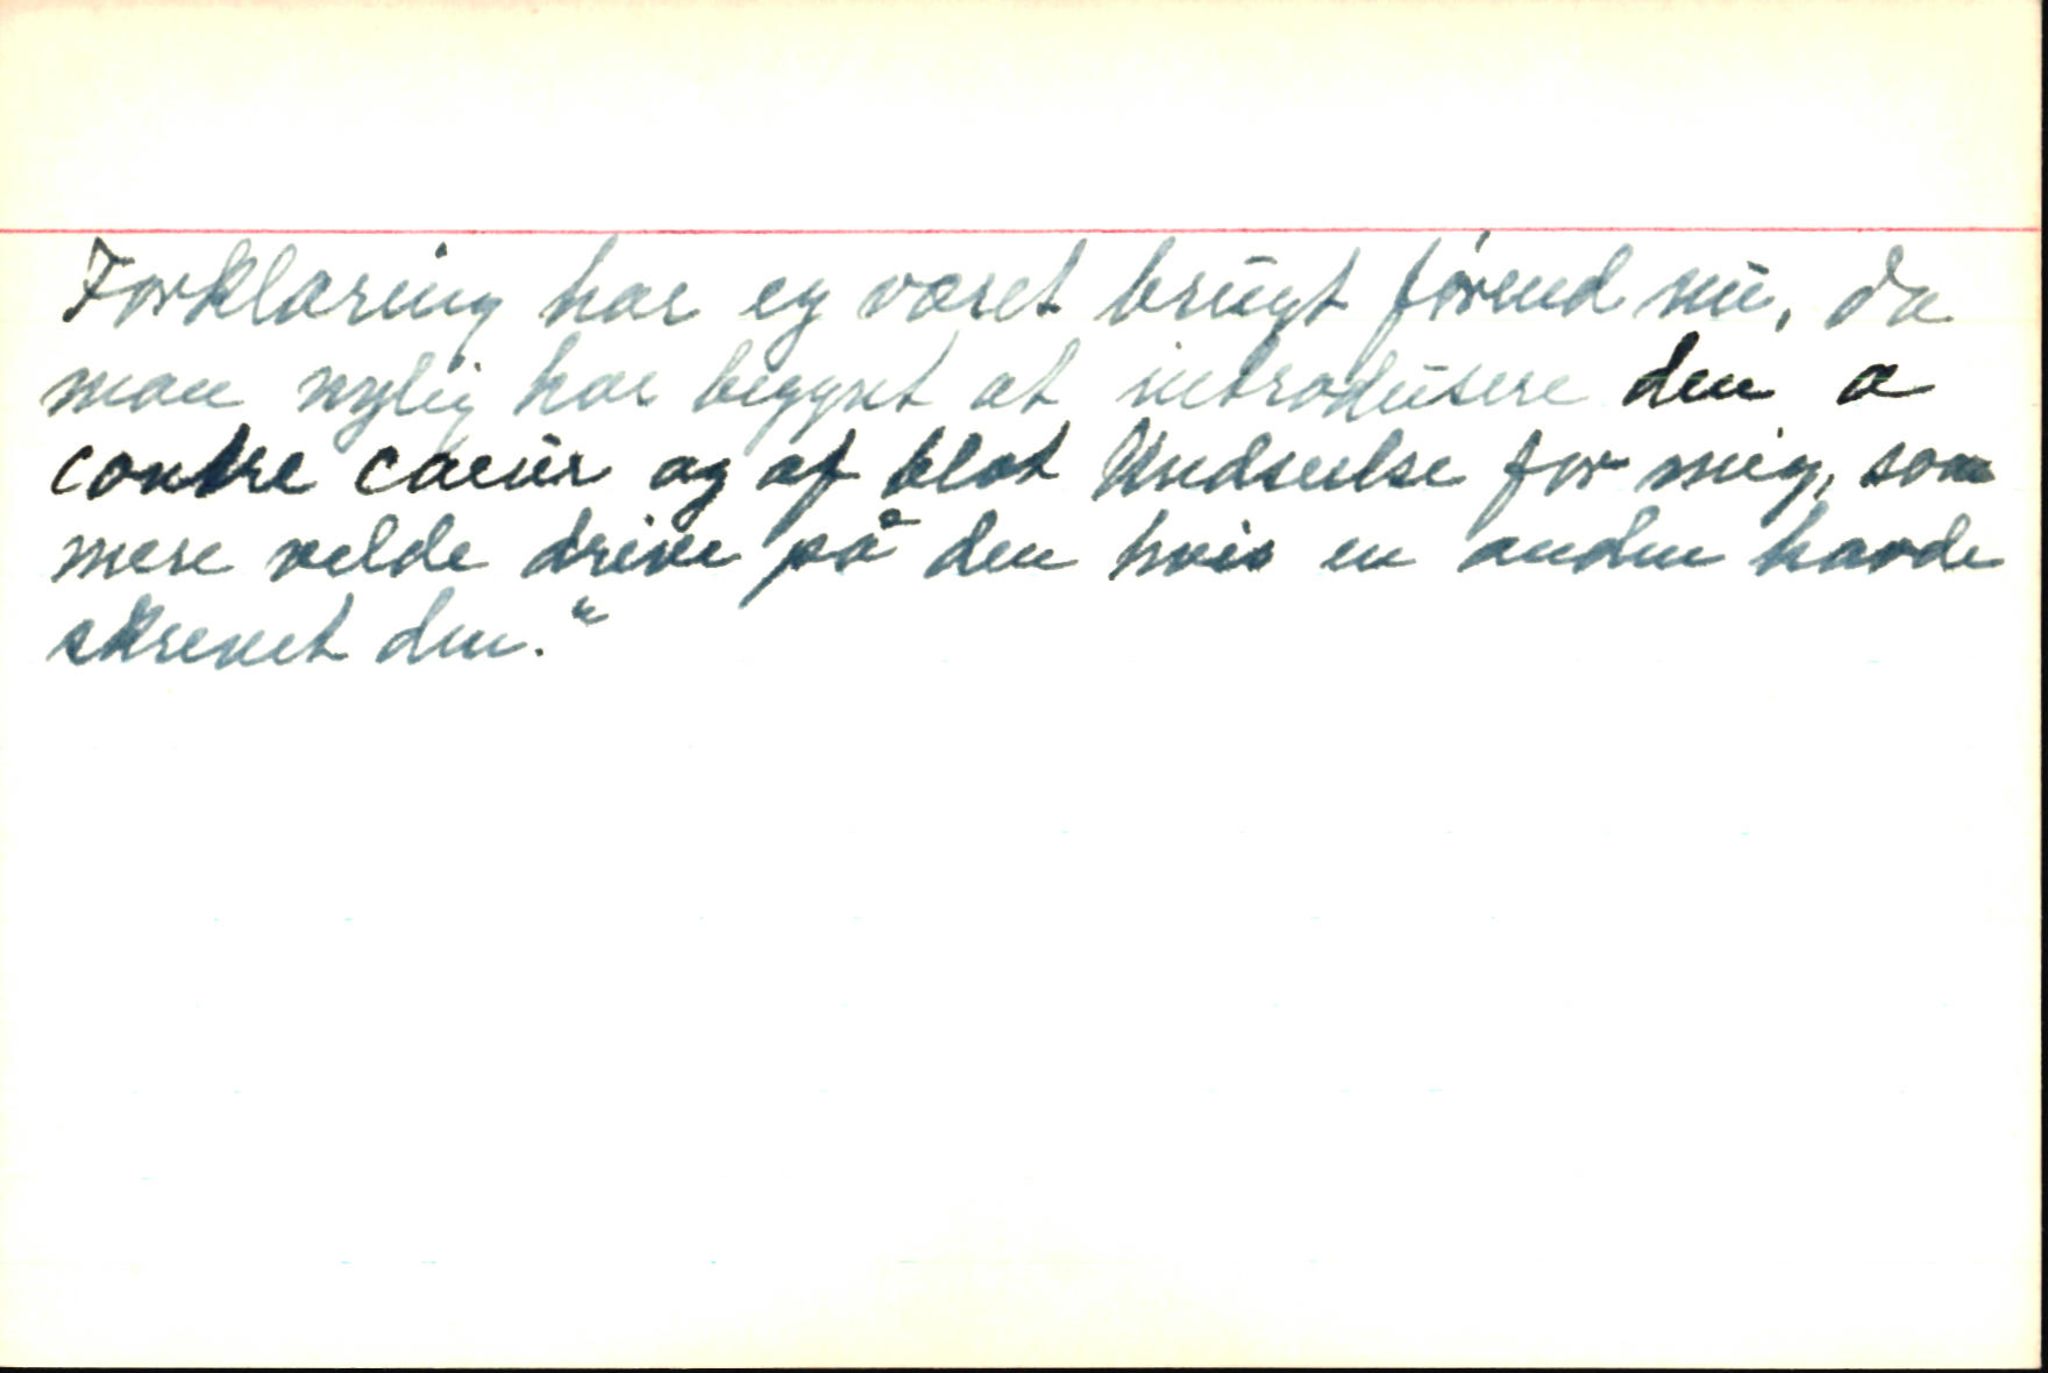 Forklaring har ej været brugt førend nu, da
man nylig har begynt at introdusere den a
contre caeur og af blot Undseelse for mig, som
mere vilde drive på den hvis en anden havde
skrevet den."